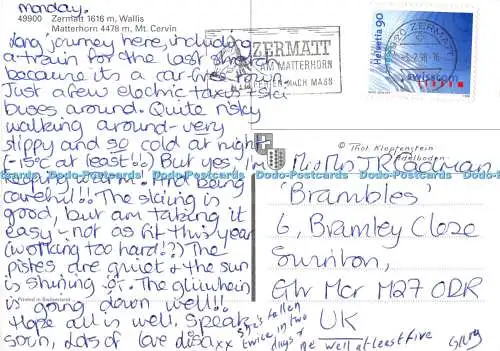 Monday.
49900 Zermatt 1616 m, Wallis
Matterhorn 4478 m, Mt. Cervin
Long journey here, including
a train for the last stretch
because its a car-less town.
Just a few electric taxis + ski
buses around. Quite risky
walking around - very
slippy and so cold at night
(-15°c at least!!) But yes I'm
keeping warm. And being
careful!! The skiing is
good, but am taking it
easy - not as fit this year
(working too hard!?) The
pistes are quiet & the sun
is shining. The gluwhein
is going down well!!
Hope all is well. Speak
soon, lots of love Lisa xx
She's fallen
twice in two
days &
not well at least five
ZERMATT
AM MATTERHORN
FERIEN NACH MASS
3920 ZERMATT
Helvetia 90
swisscom
© Thol. Klopfenstein
Adelboden
Mr & Mrs JR Cadman
'Brambles'
6, Bramley Close
Swinton,
Gtr Mcr M27 0DR
UK
Printed in Switzerland
Dodo-Postcards Dodo-Postcards Dodo-Postcards Dodo-Postcards Dodo-Postcards